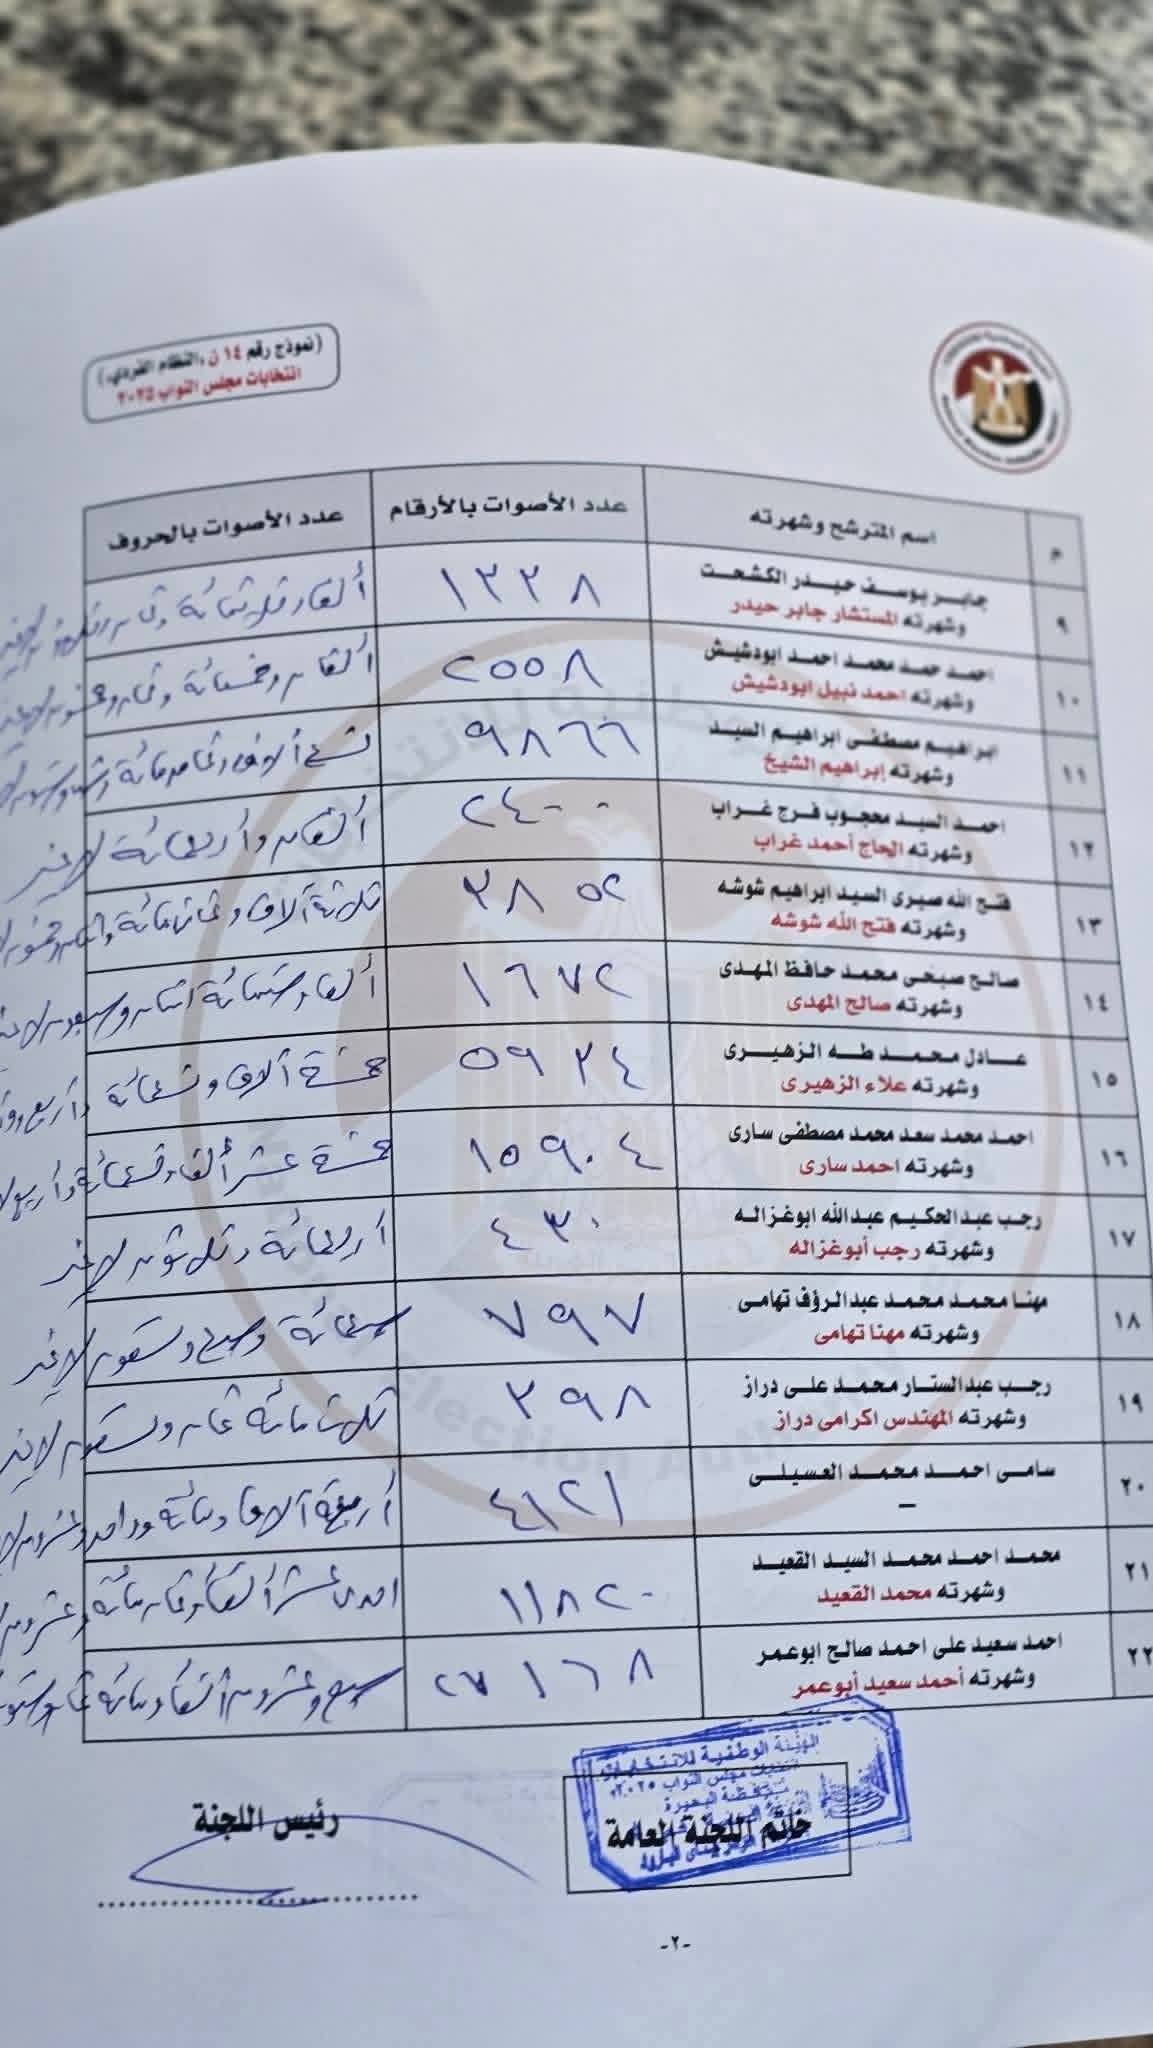 (نموذج رقم ١٤ ن ،النظام الفردي،)
انتخابات مجلس النواب ٢٠٢٥
م اسم المترشح وشهرته عدد الأصوات بالأرقام عدد الأصوات بالحروف
٩ جابر يوسف حيدر الكشحت ١٣٣٨ ألف وثلاثمائة
وشهرته المستشار جابر حيدر
١٠ احمد حمد محمد احمد ابودشيش ٢٥٥٨ ألفان وخمسمائة وثمان وخمسون لاغير
وشهرته احمد نبيل ابودشيش
١١ ابراهيم مصطفى ابراهيم السيد ٩٨٦٦ تسع آلاف وثمانمائة وستة وستون
وشهرته إبراهيم الشيخ
١٢ احمد السيد محجوب فرج غراب ٢٤٠٠ ألفان وأربعمائة لاغير
وشهرته الحاج أحمد غراب
١٣ فتح الله صبرى السيد ابراهيم شوشه ٣٨٥٢ ثلاثة آلاف وثمانمائة واثنان وخمسون
وشهرته فتح الله شوشه
١٤ صالح صبحى محمد حافظ المهدى ١٦٧٢ ألف وستمائة اثنان وسبعون لاغير
وشهرته صالح المهدى
١٥ عادل محمد طه الزهيرى ٥٩٣٤ خمسة آلاف وتسعمائة وأربع
وشهرته علاء الزهيرى
١٦ احمد محمد سعد محمد مصطفى سارى ١٥٩٠٤ خمسة عشر ألف وتسعمائة وأربع
وشهرته احمد سارى
١٧ رجب عبدالحكيم عبدالله ابوغزاله ٤٣٠ أربعمائة وثلاثون لاغير
وشهرته رجب أبوغزاله
١٨ مهنا محمد محمد عبدالرؤف تهامى ٧٩٧ سبعمائة وسبع وتسعون لاغير
وشهرته مهنا تهامى
١٩ رجب عبدالستار محمد على دراز ٣٩٨ ثلاث مائة ثمان وتسعون لاغير
وشهرته المهندس اكرامى دراز
٢٠ سامى احمد محمد العسيلى ٤١٢١ أربعة آلاف ومائة وواحد وعشرون
–
٢١ محمد احمد محمد السيد القعيد ١١٨٢٠ احدى عشر ألف وثمانمائة وعشرون
وشهرته محمد القعيد
٢٢ احمد سعيد على احمد صالح ابوعمر ٢٧١٦٨ سبع وعشرون ألف ومائة ثمان وستون
وشهرته أحمد سعيد أبوعمر
الهيئة الوطنية للانتخابات
انتخابات مجلس النواب ٢٠٢٥
محافظة البحيرة
خاتم اللجنة العامة
رئيس اللجنة
-٢-